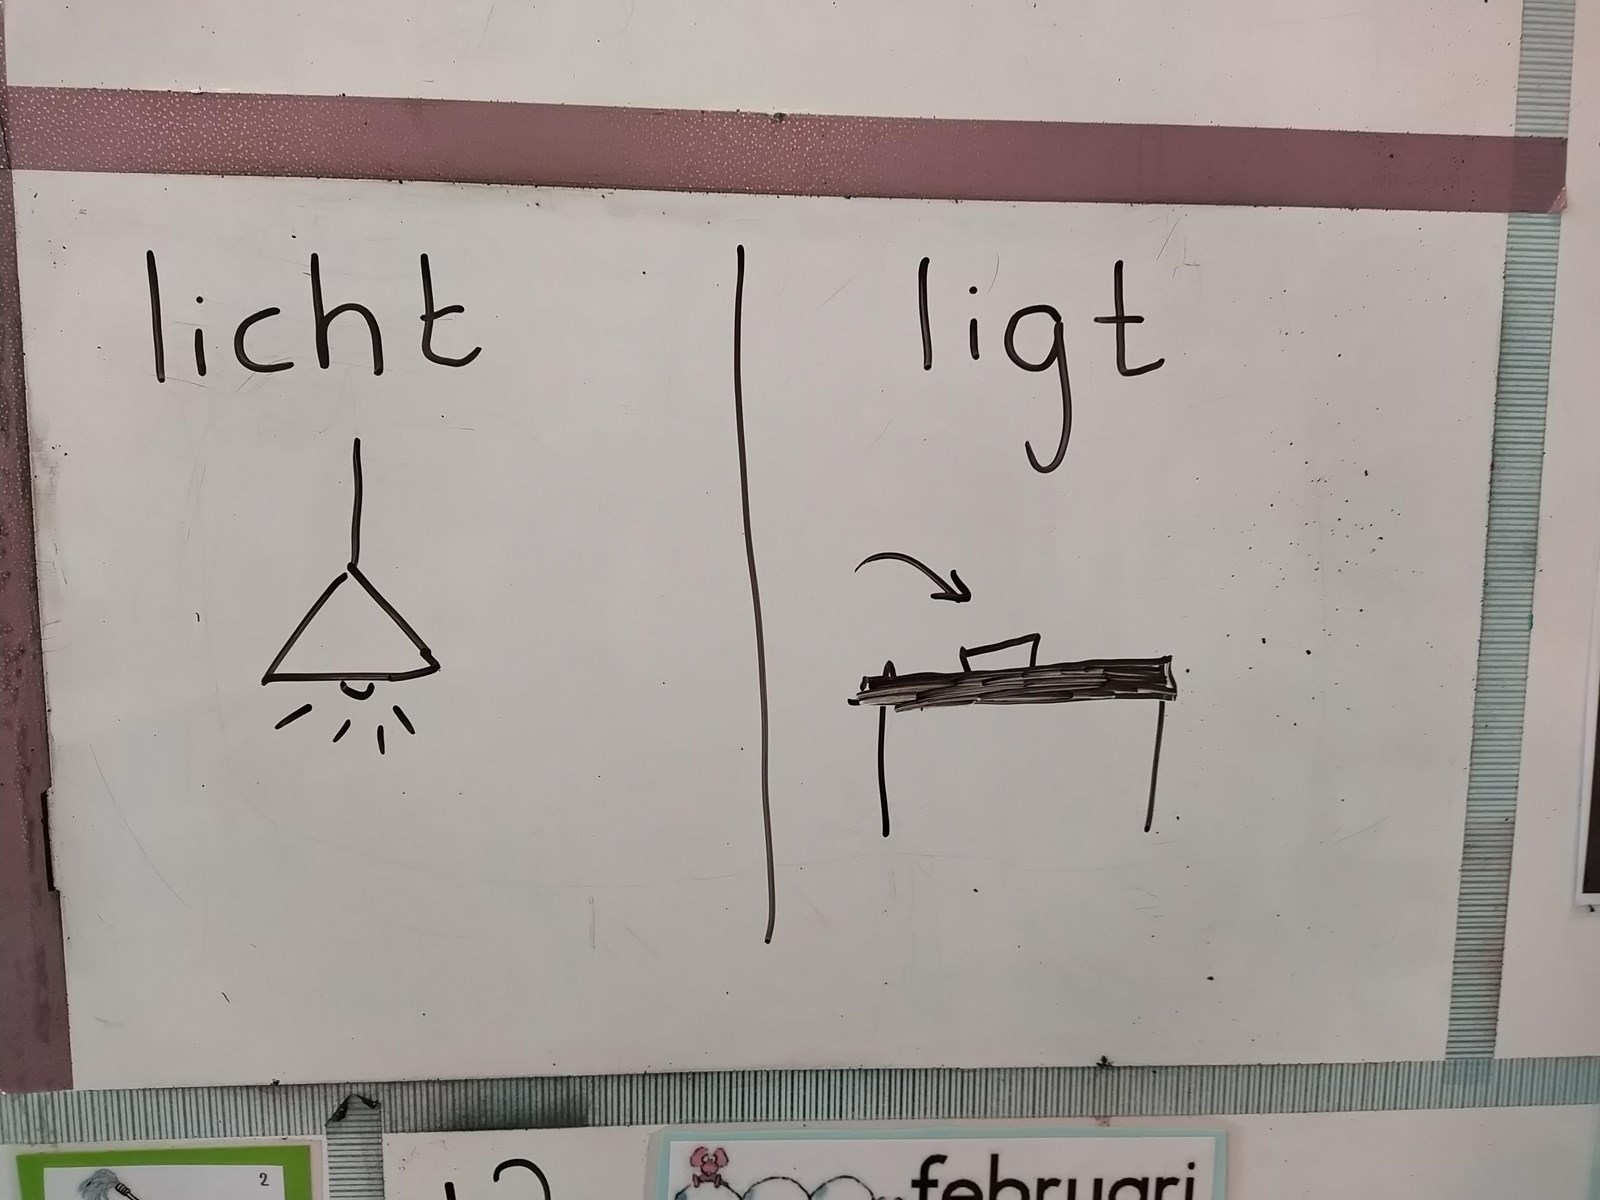 licht
ligt
2
februari